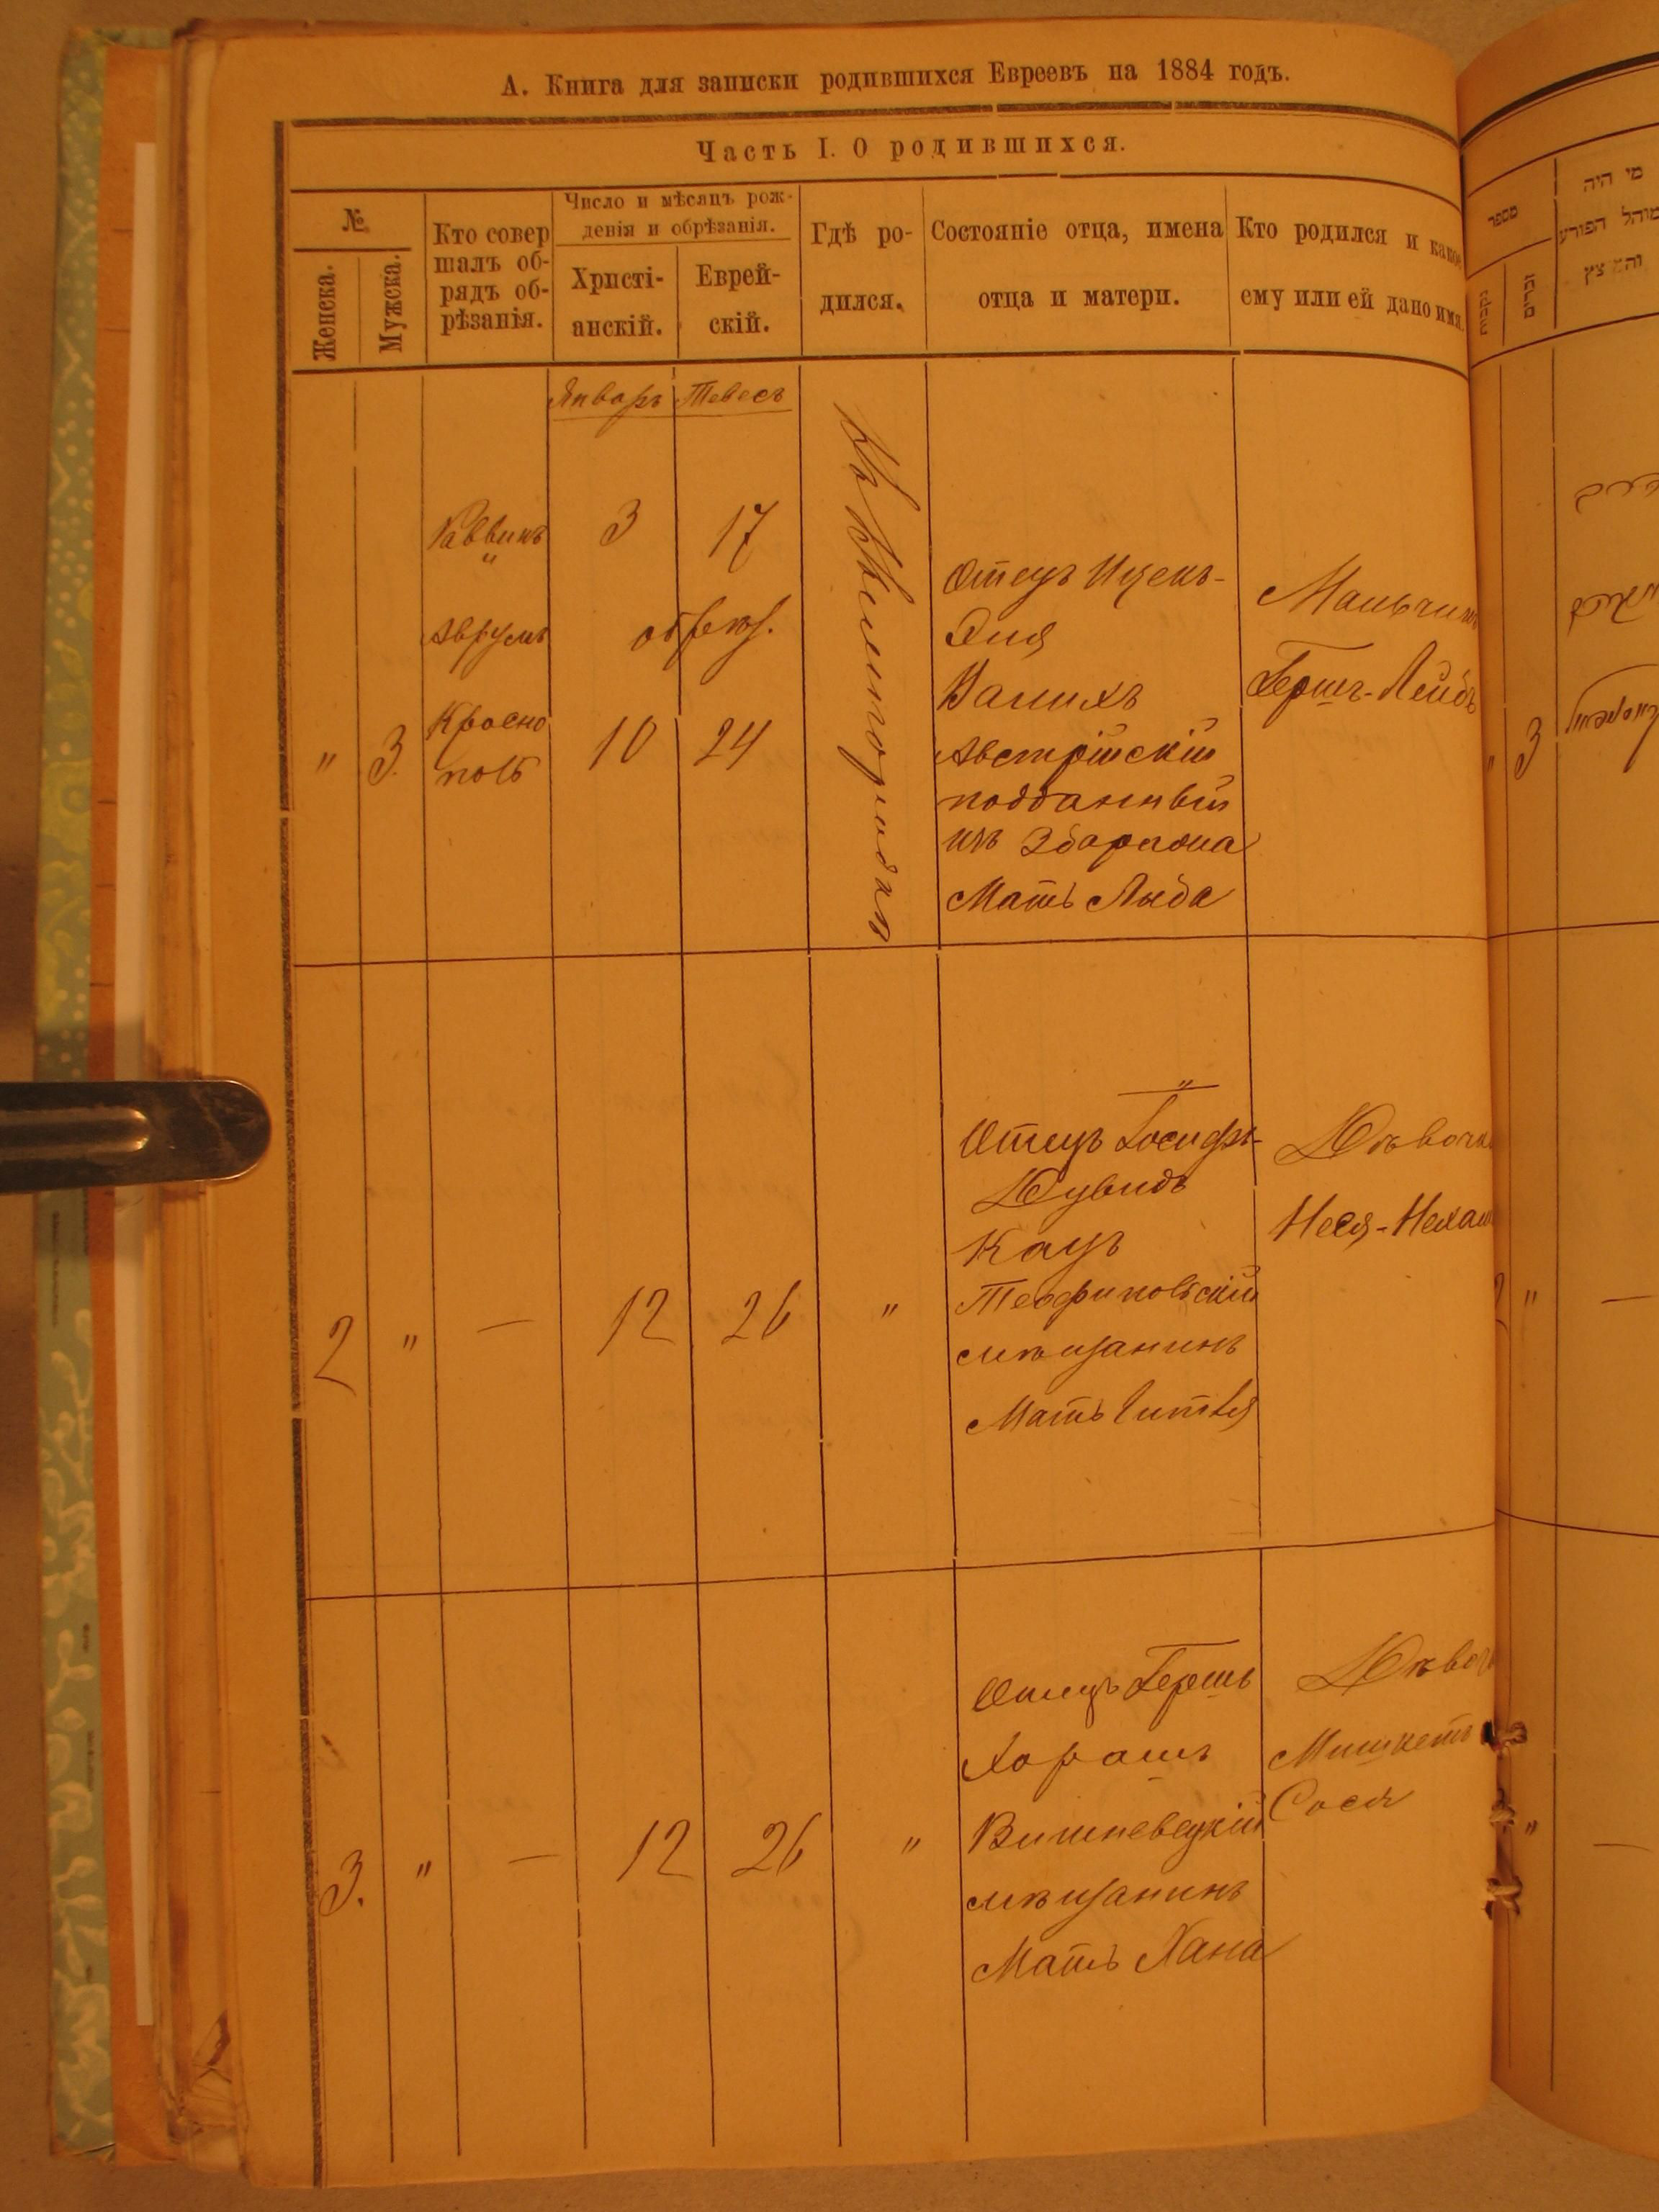 А. Книга для записки родившихся Евреевъ на 1884 годъ.
Часть I. О родившихся.
№.
Женска.
Мужска.
Кто совер
шалъ об-
рядъ об-
рѣзанія.
Число и мѣсяцъ рож-
денія и обрѣзанія.
Христі-
анскій.
Еврей-
скій.
Гдѣ ро-
дился.
Состояніе отца, имена
отца и матери.
Кто родился и какое
ему или ей дано имя.
Январь
Тевесъ
"
3.
Раввинъ
"
Аврумъ
Красно
поль
3
17
обрѣз.
10
24
Отецъ Ицекъ-
Эля
Австрійскій
подданный
изъ Збаража
Мать Люба
Мальчикъ
Гершъ-Лейбъ
2
"
—
12
26
"
Отецъ Іосифъ-
Дувидъ
Кацъ
Теофипольскій
мѣщанинъ
Мать Гитля
Дѣвочка
Неся-Нехама
3.
"
—
12
26
"
Отецъ Гершъ
Хорошъ
Вишневецкій
мѣщанинъ
Мать Хана
Сося
מספר
נקבות
זכרים
מי היה
מוהל הפורע
והמצץ
"
3
"
—
"
—